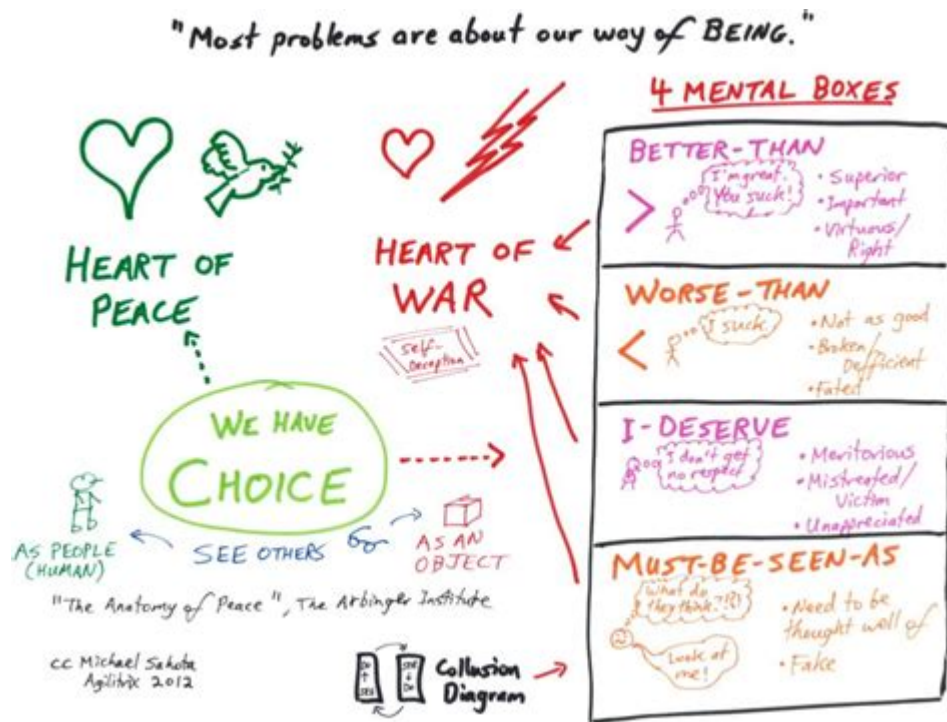 "Most problems are about our way of BEING."
4 MENTAL BOXES
HEART OF
PEACE
HEART OF
WAR
Self-
Deception
WE HAVE
CHOICE
AS PEOPLE
(HUMAN)
SEE OTHERS
AS AN
OBJECT
"The Anatomy of Peace", The Arbinger Institute
cc Michael Sahota
Agilitrix 2012
Collusion
Diagram
BETTER-THAN
I'm great.
You suck!
• Superior
• Important
• Virtuous/
Right
WORSE-THAN
I suck.
• Not as good
• Broken/
Defficient
• Fated
I-DESERVE
I don't get
no respect
• Meritorious
• Mistreated/
Victim
• Unappreciated
MUST-BE-SEEN-AS
What do
they think?!?!
Look at
me!
• Need to be
thought well of
• Fake